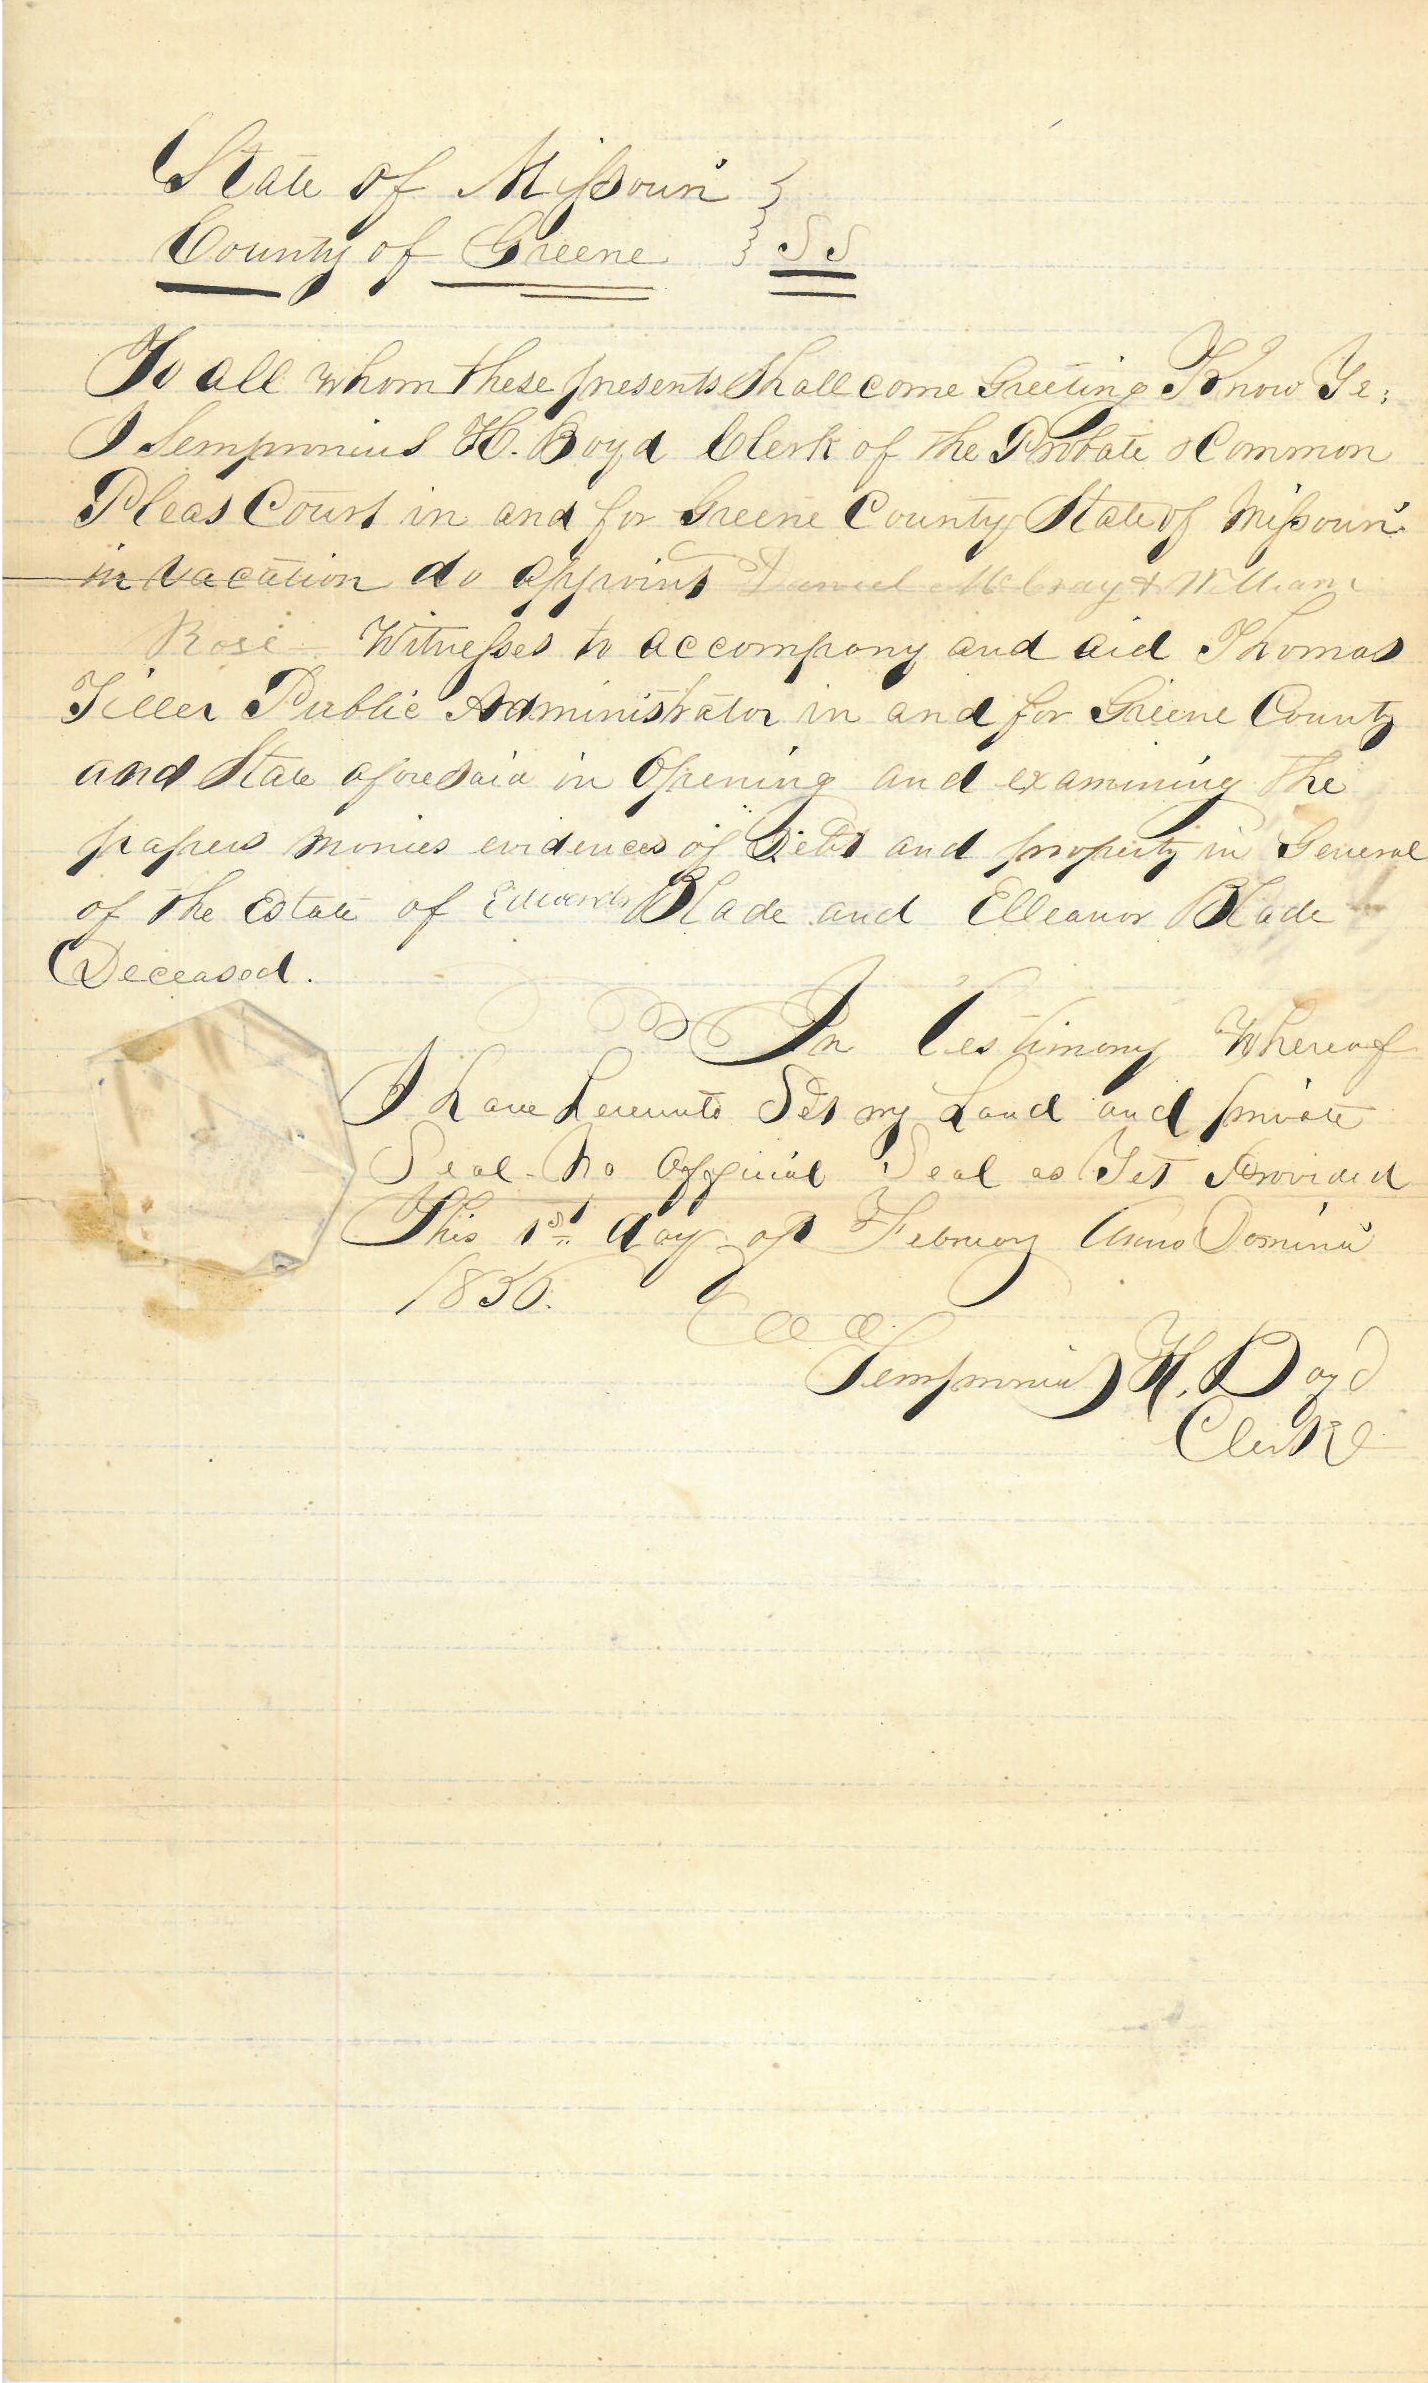 State of Missouri }
County of Greene } SS
To all whom these presents Shall come Greeting Know Ye;
I Sempronius H. Boyd Clerk of the Probate & Common
Pleas Court in and for Greene County State of Missouri
in vacation do appoint Daniel McCray & William
Rose Witnesses to accompany and aid Thomas
Tiller Public Administrator in and for Greene County
and State aforesaid in Opening and examining the
papers monies evidences of Debts and property in General
of the Estate of Edwards Blade and Elleanor Blade
Deceased.
In Testimony Whereof
I have hereunto Set my hand and private
Seal - No Official Seal as Yet Provided
This 1st day of February Anno Domini
Sempronius H. Boyd
Clerk